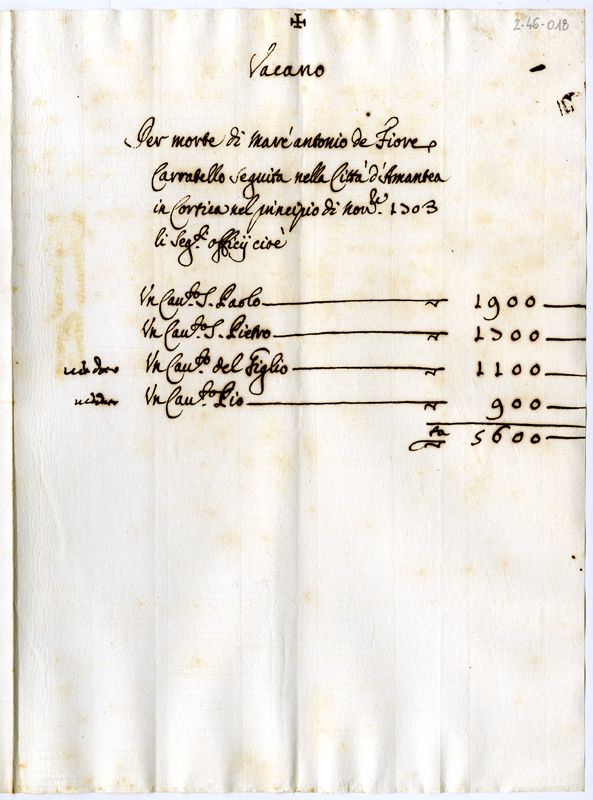 ✠
2-46-018
Vacano
Per morte di Marc'antonio de Fiore
Carratello seguita nella Città d'Amantea
in Corsica nel principio di nov.re 1703
li seg.ti officij cioè
Un Cau.to S. Paolo 1900
Un Cau.to S. Pietro 1700
Un Cau.to del Giglio 1100
Un Cau.to Pio 900
5600